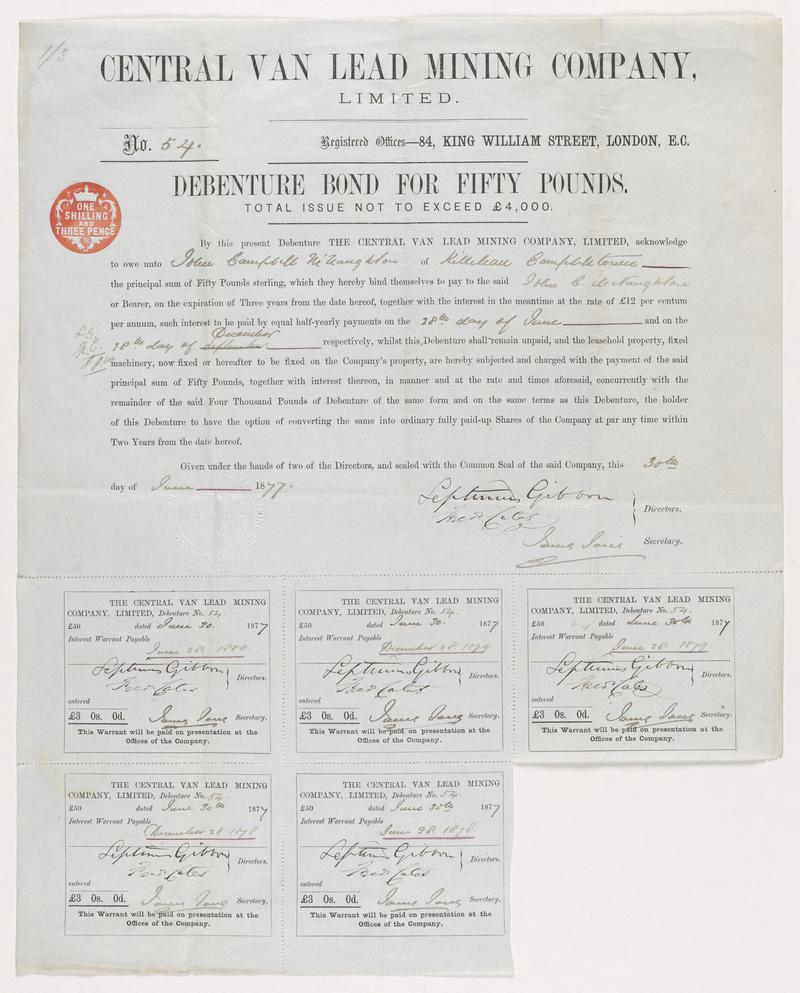 1/3
CENTRAL VAN LEAD MINING COMPANY,
LIMITED.
No. 54. Registered Offices—84, KING WILLIAM STREET, LONDON, E.C.
DEBENTURE BOND FOR FIFTY POUNDS.
TOTAL ISSUE NOT TO EXCEED £4,000.
ONE
SHILLING
AND
THREE PENCE
By this present Debenture THE CENTRAL VAN LEAD MINING COMPANY, LIMITED, acknowledge
to owe unto John Campbell McNaughton of Killelean Campbletown
the principal sum of Fifty Pounds sterling, which they hereby bind themselves to pay to the said John C. McNaughton
or Bearer, on the expiration of Three years from the date hereof, together with the interest in the meantime at the rate of £12 per centum
per annum, such interest to be paid by equal half-yearly payments on the 28th day of June and on the
December
28th day of september respectively, whilst this Debenture shall remain unpaid, and the leasehold property, fixed
machinery, now fixed or hereafter to be fixed on the Company's property, are hereby subjected and charged with the payment of the said
principal sum of Fifty Pounds, together with interest thereon, in manner and at the rate and times aforesaid, concurrently with the
remainder of the said Four Thousand Pounds of Debenture of the same form and on the same terms as this Debenture, the holder
of this Debenture to have the option of converting the same into ordinary fully paid-up Shares of the Company at par any time within
Two Years from the date hereof.
Given under the hands of two of the Directors, and sealed with the Common Seal of the said Company, this 30th
day of June 1877.
Septimus Gibbon
Fred Cates
Directors.
Secretary.
THE CENTRAL VAN LEAD MINING
COMPANY, LIMITED, Debenture No. 54.
£50 dated June 30. 1877
Interest Warrant Payable
June 28. 1880.
Septimus Gibbon
Fred Cates
Directors.
entered
£3 0s. 0d. Secretary.
This Warrant will be paid on presentation at the
Offices of the Company.
THE CENTRAL VAN LEAD MINING
COMPANY, LIMITED, Debenture No. 54.
£50 dated June 30. 1877
Interest Warrant Payable
December 28. 1879
Septimus Gibbon
Fred Cates
Directors.
entered
£3 0s. 0d. Secretary.
This Warrant will be paid on presentation at the
Offices of the Company.
THE CENTRAL VAN LEAD MINING
COMPANY, LIMITED, Debenture No. 54.
£50 dated June 30th 1877
Interest Warrant Payable
June 28. 1879
Septimus Gibbon
Fred Cates
Directors.
entered
£3 0s. 0d. Secretary.
This Warrant will be paid on presentation at the
Offices of the Company.
THE CENTRAL VAN LEAD MINING
COMPANY, LIMITED, Debenture No. 54.
£50 dated June 30th 1877
Interest Warrant Payable
December 28 1878
Septimus Gibbon
Fred Cates
Directors.
entered
£3 0s. 0d. Secretary.
This Warrant will be paid on presentation at the
Offices of the Company.
THE CENTRAL VAN LEAD MINING
COMPANY, LIMITED, Debenture No. 54.
£50 dated June 30th 1877
Interest Warrant Payable
June 28. 1878.
Septimus Gibbon
Fred Cates
Directors.
entered
£3 0s. 0d. Secretary.
This Warrant will be paid on presentation at the
Offices of the Company.